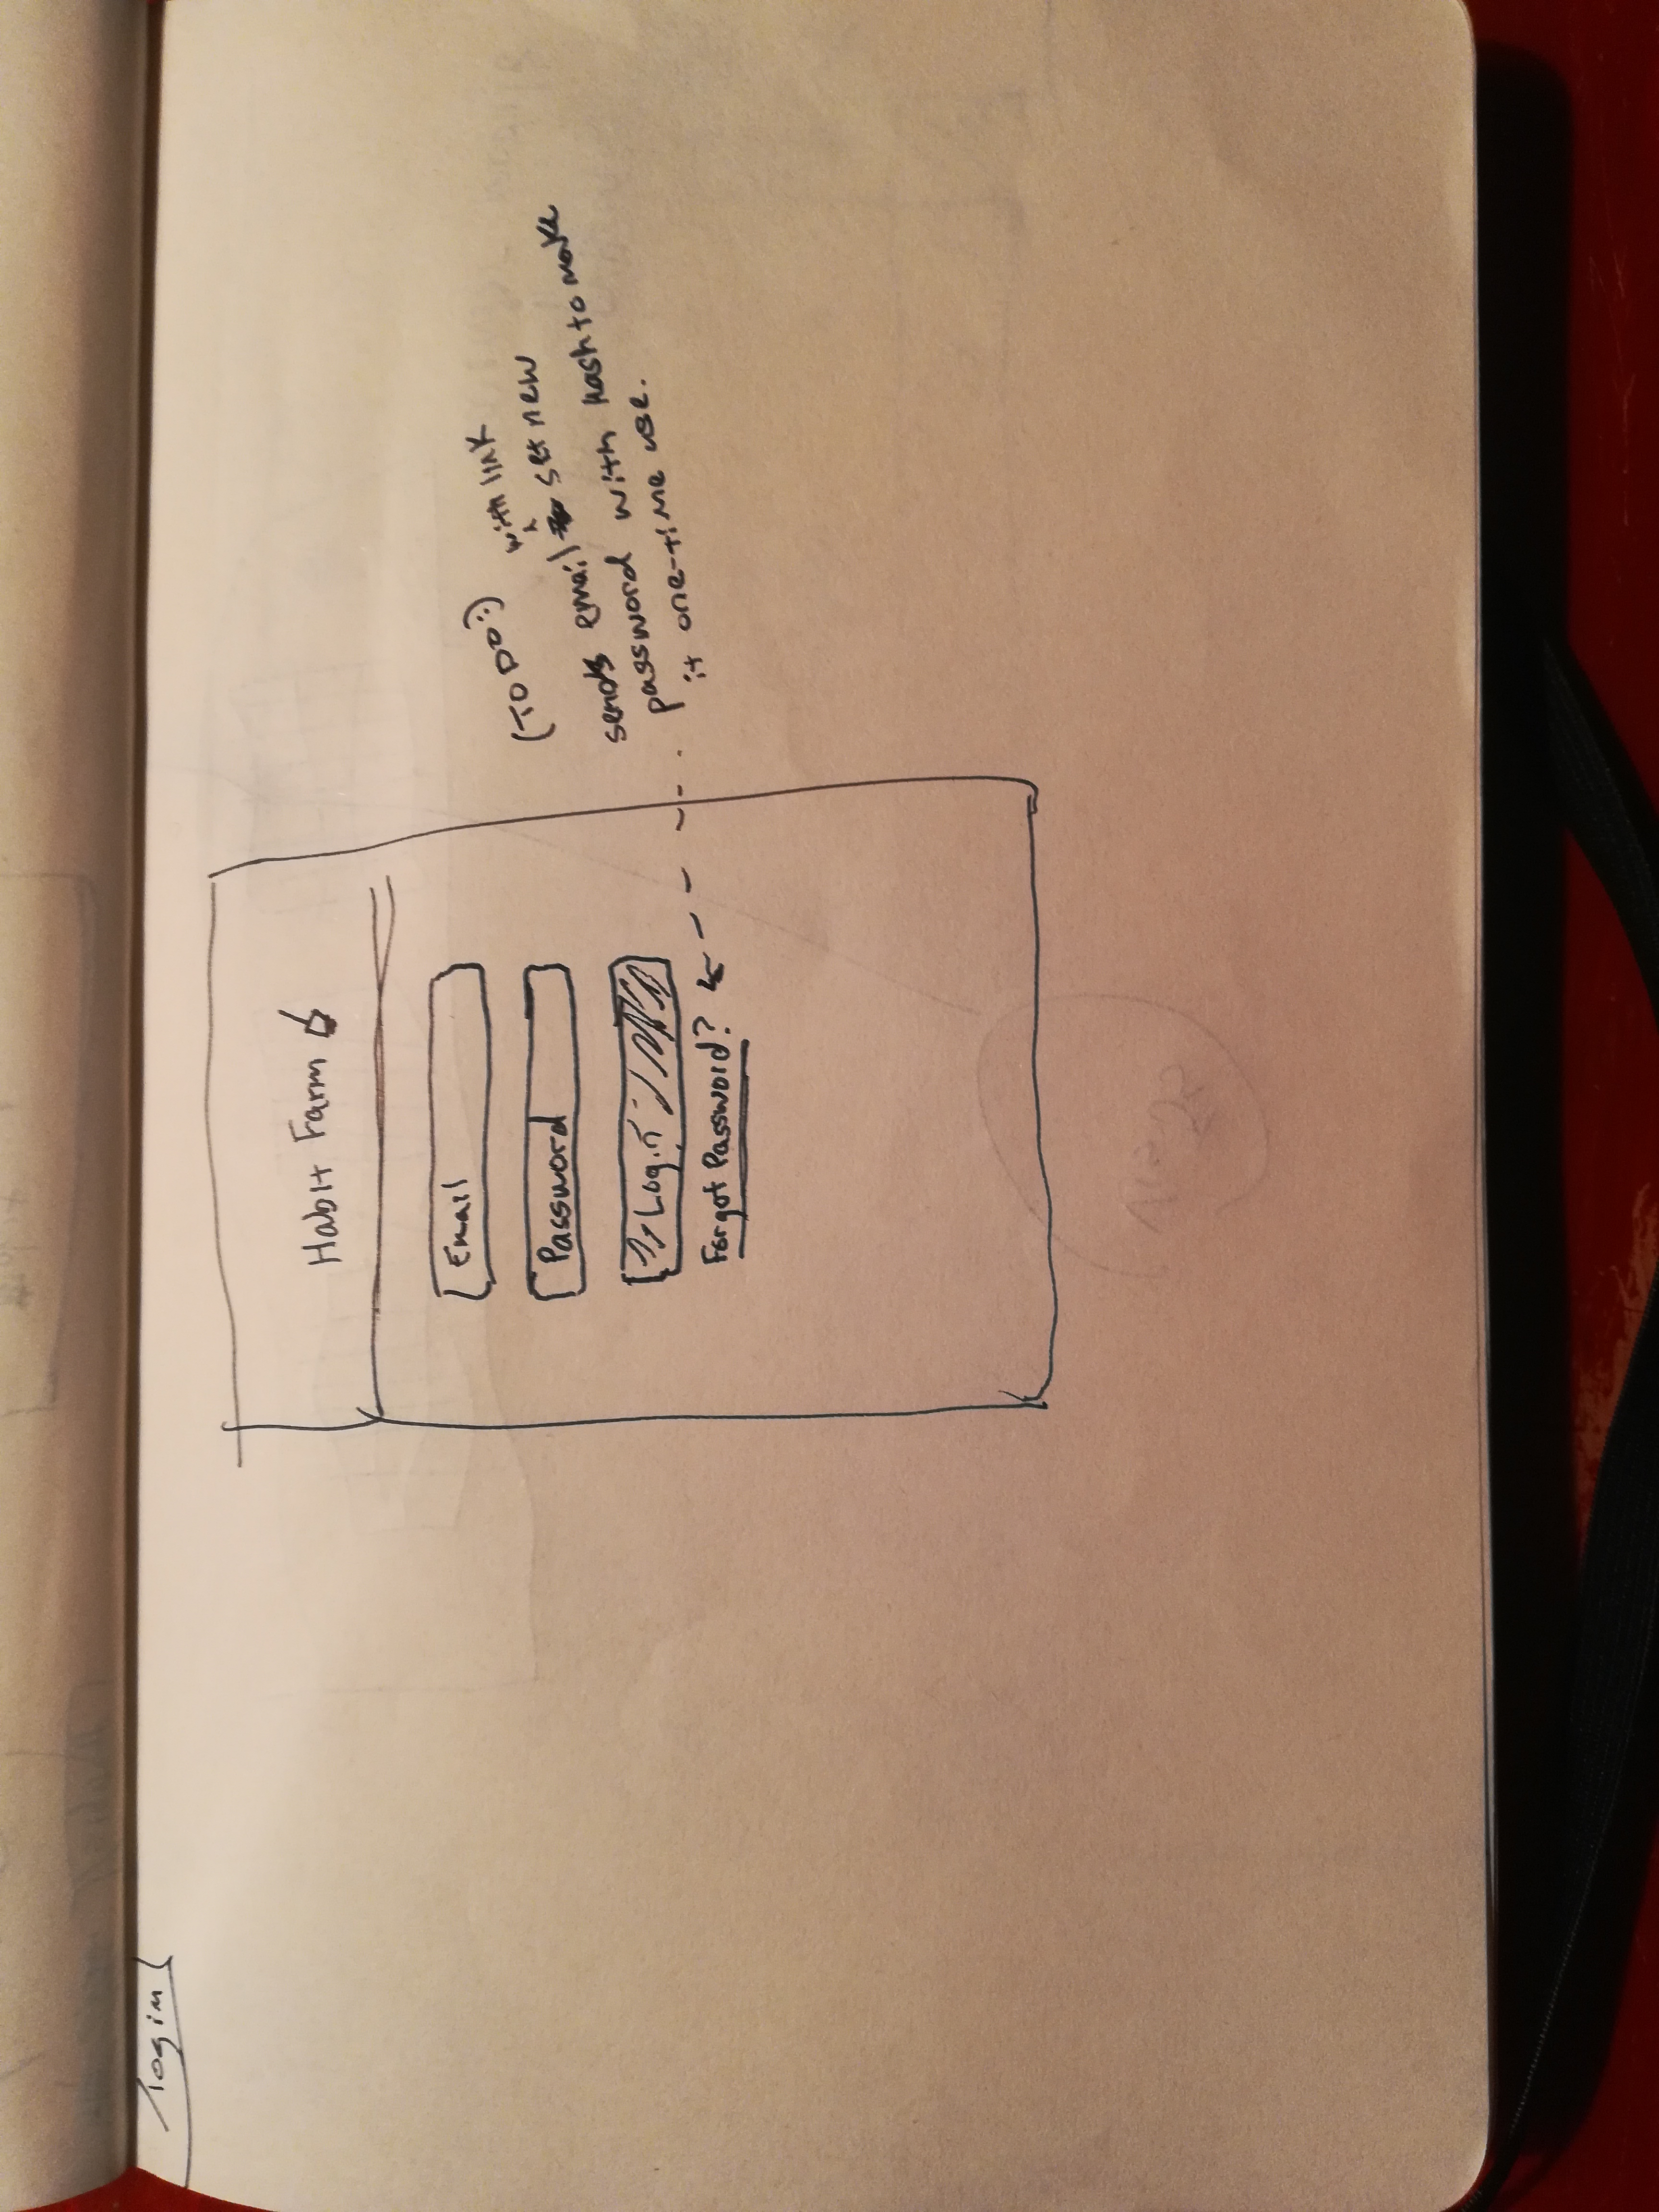 /login
Habit Farm
Email
Password
Login
Forgot Password?
(TODO:)
with link
sends email set new
password with hash to make
it one-time use.